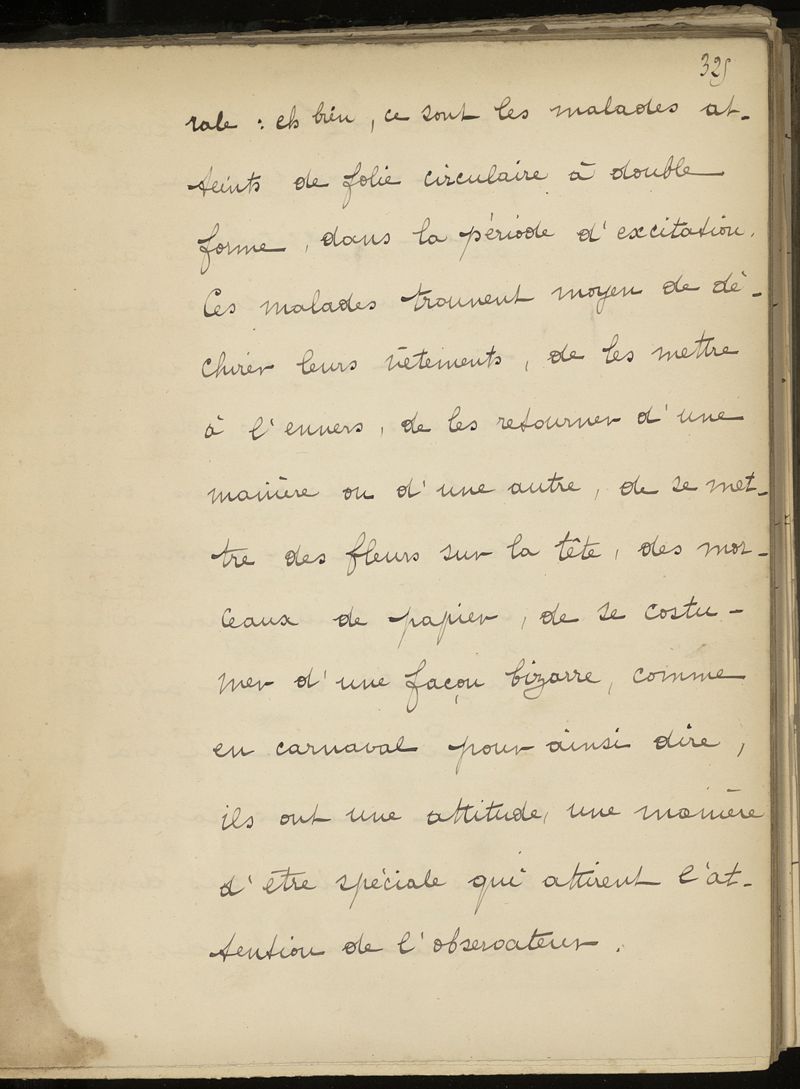 325
rale : eh bien, ce sont les malades at-
teints de folie circulaire à double
forme, dans la période d'excitation.
Ces malades trouvent moyen de dé-
chirer leurs vêtements, de les mettre
à l'envers, de les retourner d'une
manière ou d'une autre, de se met-
tre des fleurs sur la tête, des mor-
ceaux de papier, de se costu-
mer d'une façon bizarre, comme
en carnaval pour ainsi dire,
ils ont une attitude, une manière
d'être spéciale qui attirent l'at-
tention de l'observateur.